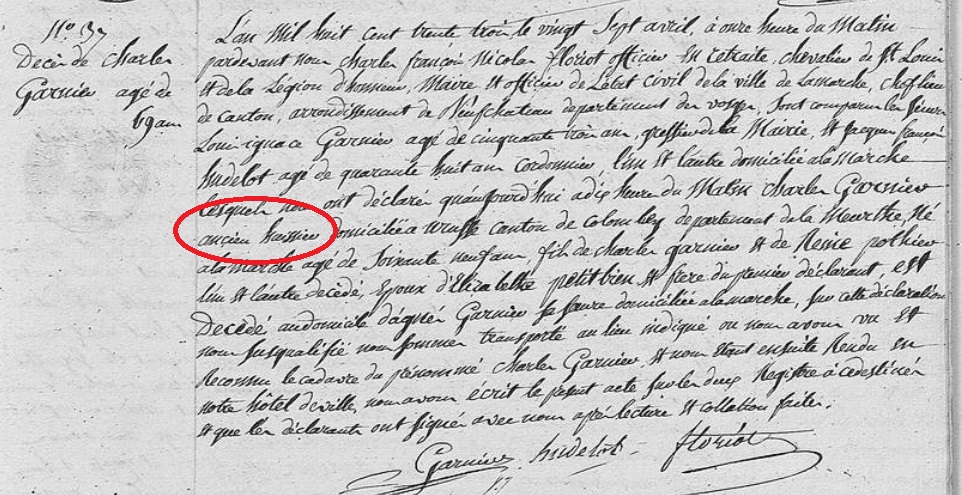 N.° 37
Decès de Charles
Garnier agé de
69 ans
L'an mil huit cent trente trois le vingt Sept avril, à onze heure du Matin
pardevant nous charles françois Nicolas floriot officier en retraite, chevalier de St Louis
et de la Légion d'honneur, Maire et officier de L'état civil de la ville de Lamarche, chef lieu
de canton, arrondissement de Neufchateau departement des vosges, Sont comparus les Sieurs
Louis ignace Garnier agé de cinquante trois ans, greffier de la Mairie, et Jacques françois
hudelot agé de quarante huit ans Cordonnier, l'un et l'autre domicilié a la marche
lesquels nous ont déclaré qu'aujourd'hui a dix heure du Matin charles Garnier
ancien huissier domicilié a canton de colombey departement de la Meurthe, Né
a la marche agé de Soixante neuf ans, fils de charles garnier et de Reine pothier
l'un et l'autre decédé, Epoux d'Elizabethe petitbien et frere du premier déclarant, est
Decédé au domicile d'agnès Garnier sa sœure domiciliée a la marche, sur cette déclaration
nous susqualifié nous sommes transporté au lieu indiqué ou nous avons vu et
Reconnu le cadavre du prénommé charles Garnier et nous étant ensuite Rendu en
notre hôtel de ville, nous avons écrit le présent acte sur les deux Registre à ce destinés
et que les déclarants ont signés avec nous après lecture et collation faites.
Garnier hudelot floriot